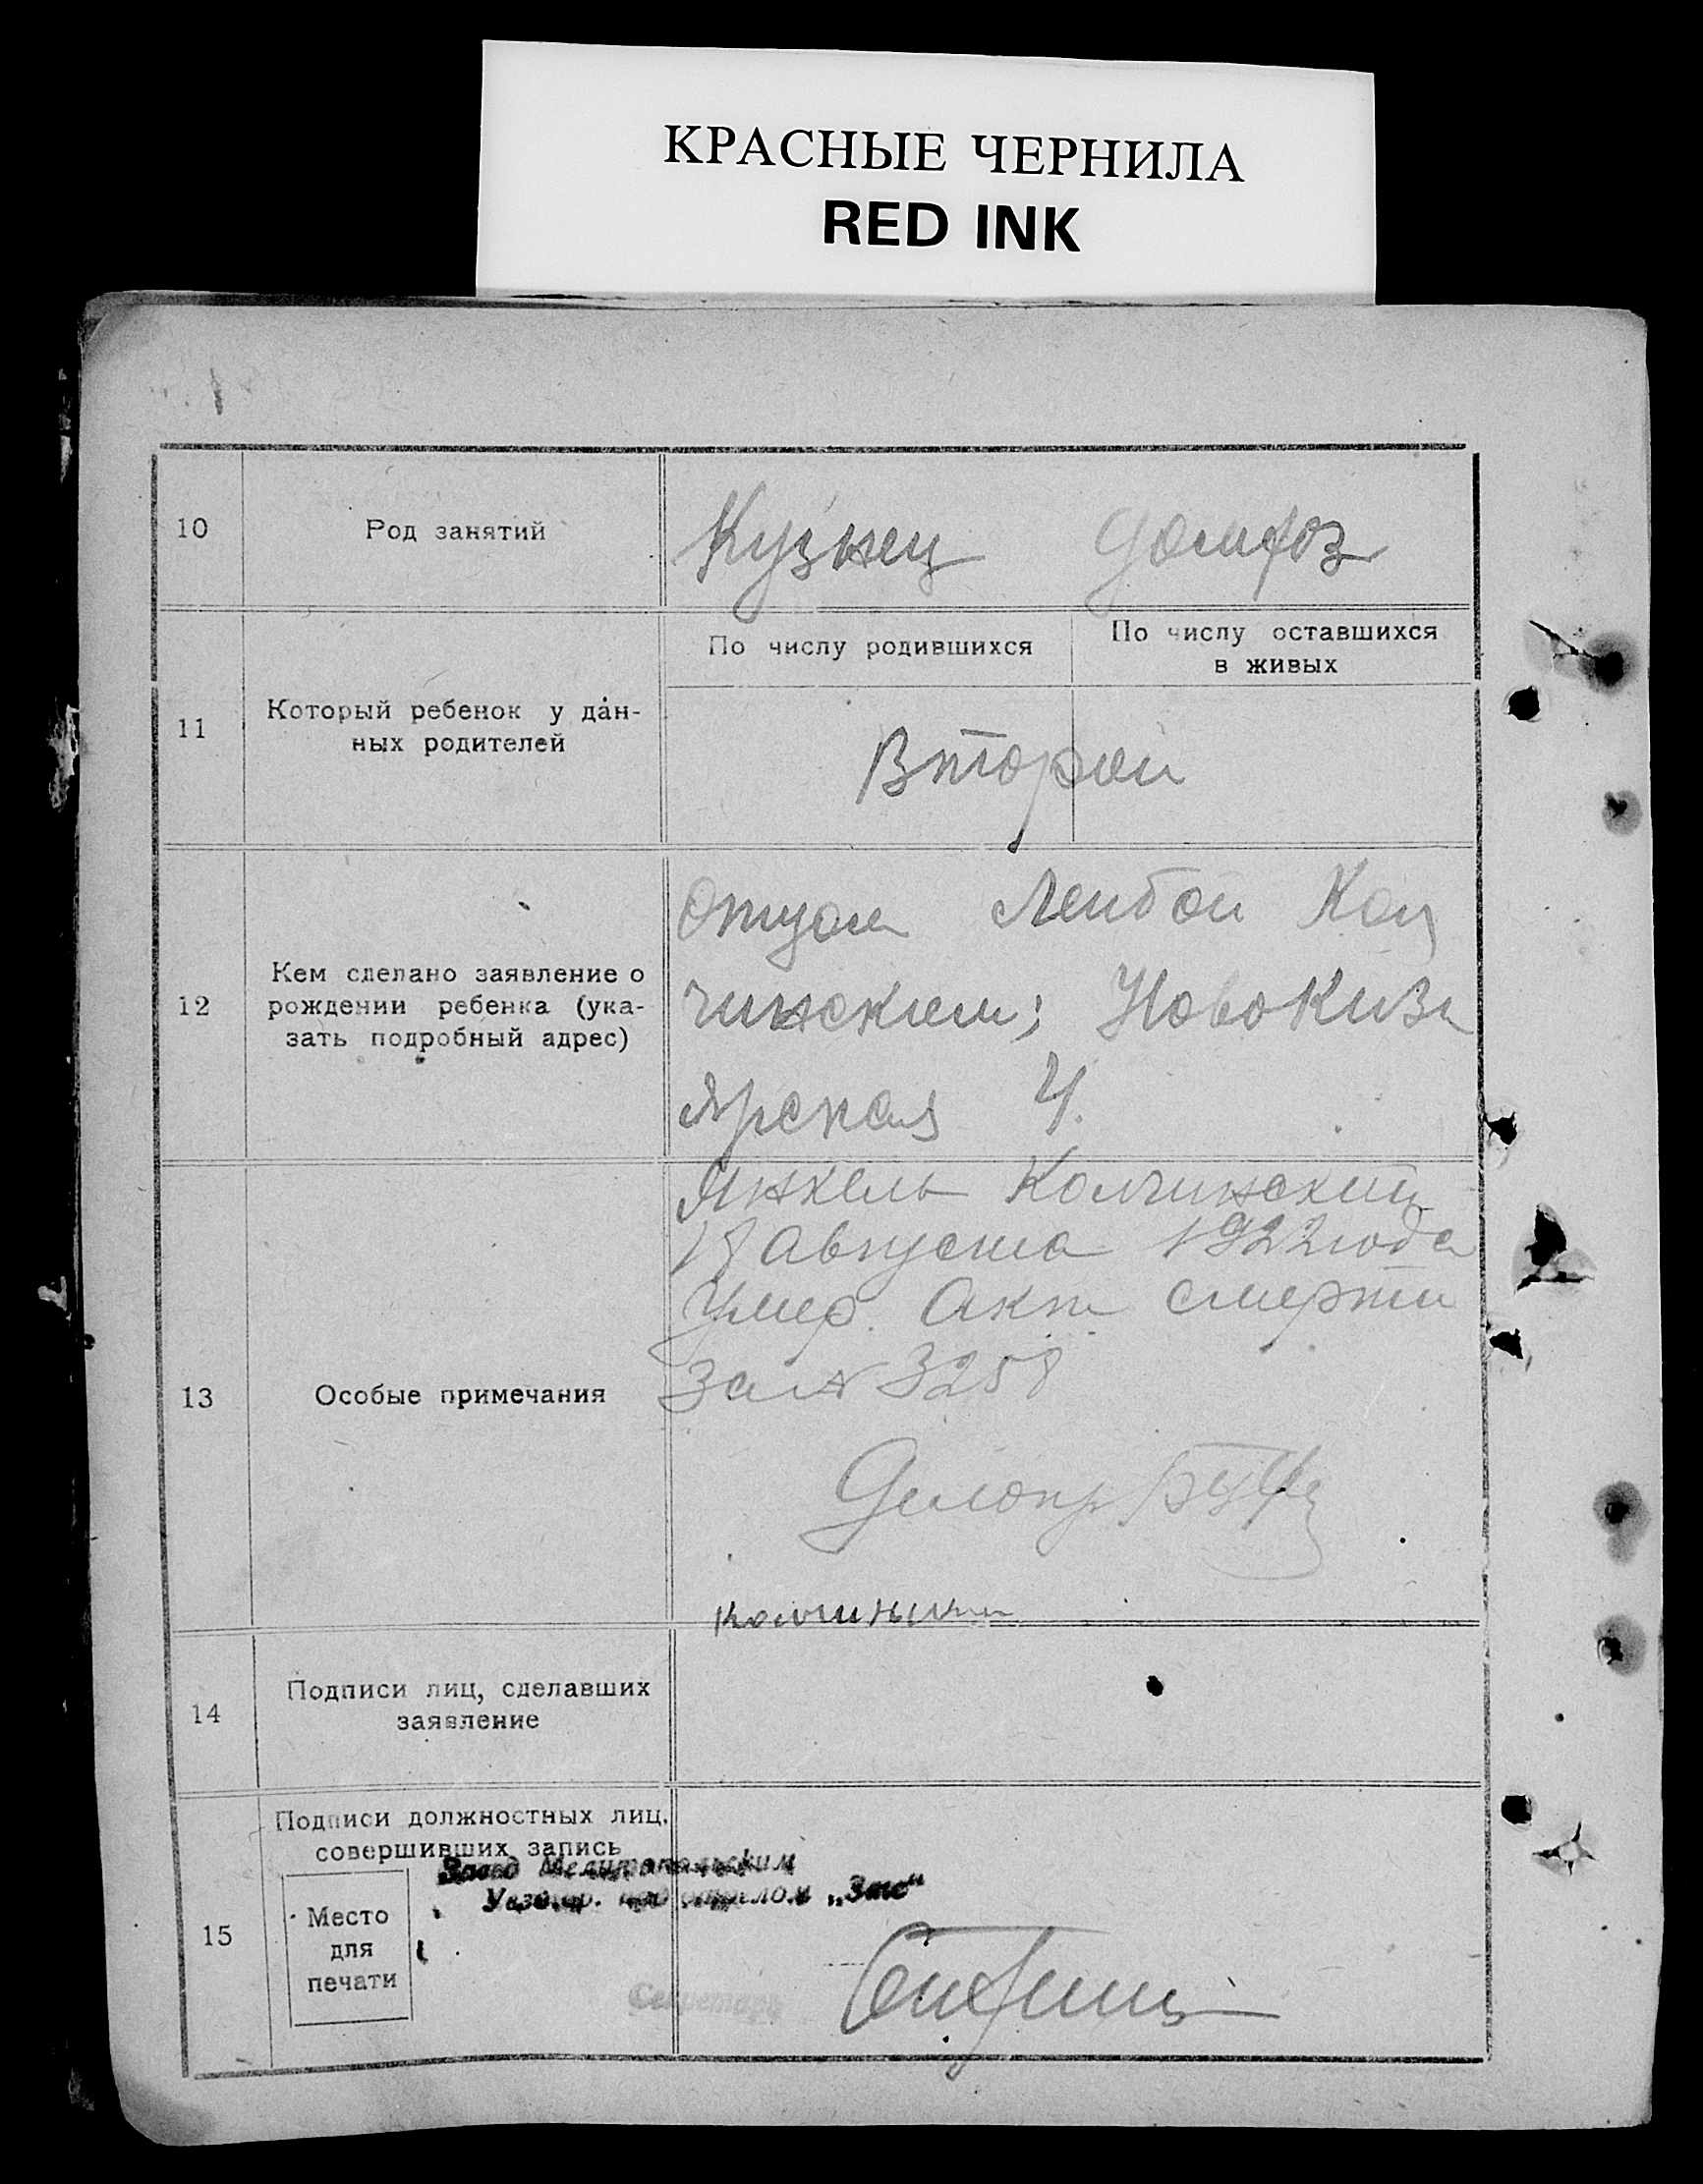 КРАСНЫЕ ЧЕРНИЛА
RED INK
10
Род занятий
Кузнец
домхоз
11
Который ребенок у дан-
ных родителей
По числу родившихся
По числу оставшихся
в живых
Второй
12
Кем сделано заявление о
рождении ребенка (ука-
зать подробный адрес)
Отцом Лейбой Кол
чинским;
Ярская 4.
13
Особые примечания
Янкель Колчинский
18 Августа 1922 года
Умер. Акт смерти
за № 3258
Делопр
14
Подписи лиц, сделавших
заявление
15
Подписи должностных лиц,
совершивших запись
Место
для
печати
Завед Мелитопольским
подотделом „Загс“
Секретарь